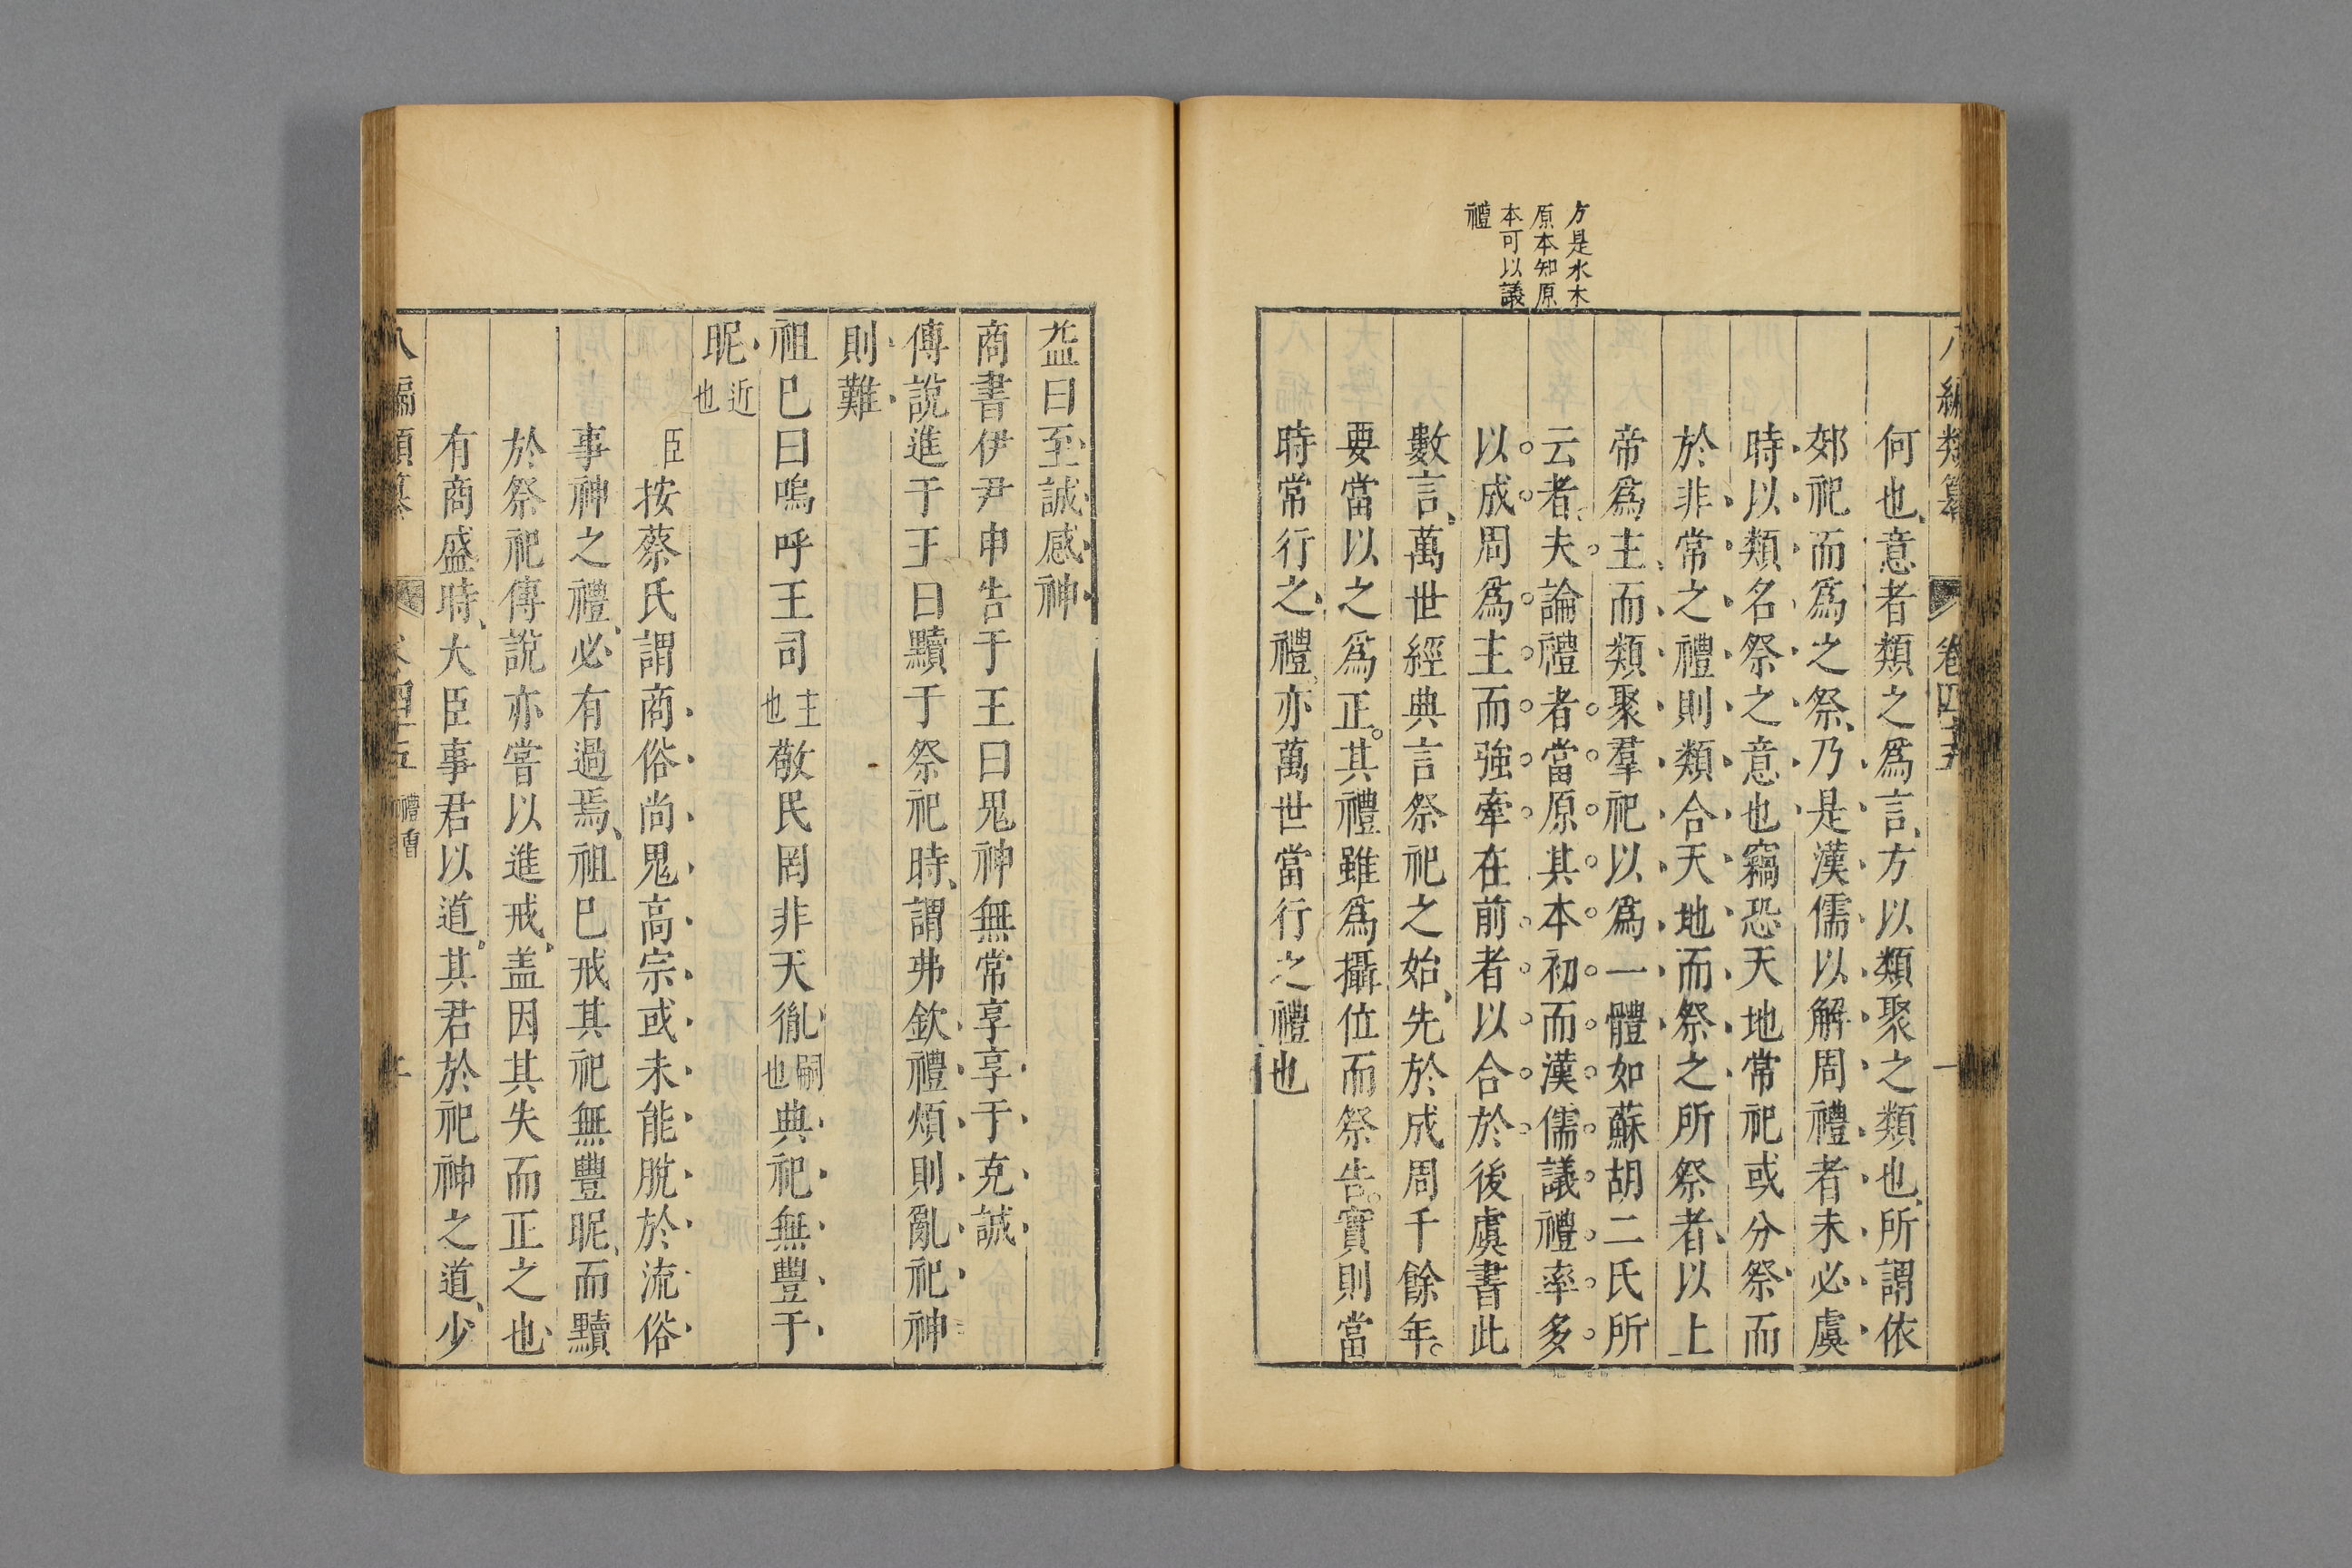 八編類纂 卷四十五 一
方是水木
原本知原
本可以議
禮
何也意者類之爲言方以類聚之類也所謂依
郊祀而爲之祭乃是漢儒以解周禮者未必虞
時以類名祭之意也竊恐天地常祀或分祭而
於非常之禮則類合天地而祭之所祭者以上
帝爲主而類聚羣祀以爲一體如蘇胡二氏所
云者夫論禮者當原其本初而漢儒議禮率多
以成周爲主而強牽在前者以合於後虞書此
數言萬世經典言祭祀之始先於成周千餘年
要當以之爲正其禮雖爲攝位而祭告實則當
時常行之禮亦萬世當行之禮也
益曰至諴感神
商書伊尹申告于王曰鬼神無常享享于克誠
傅說進于王曰黷于祭祀時謂弗欽禮煩則亂祀神
則難
祖巳曰嗚呼王司主也敬民罔非天胤嗣也典祀無豐于
昵近也
臣按蔡氏謂商俗尚鬼高宗或未能脫於流俗
事神之禮必有過焉祖巳戒其祀無豐昵而黷
於祭祀傅說亦嘗以進戒盖因其失而正之也
有商盛時大臣事君以道其君於祀神之道少
八編類纂 卷四十五